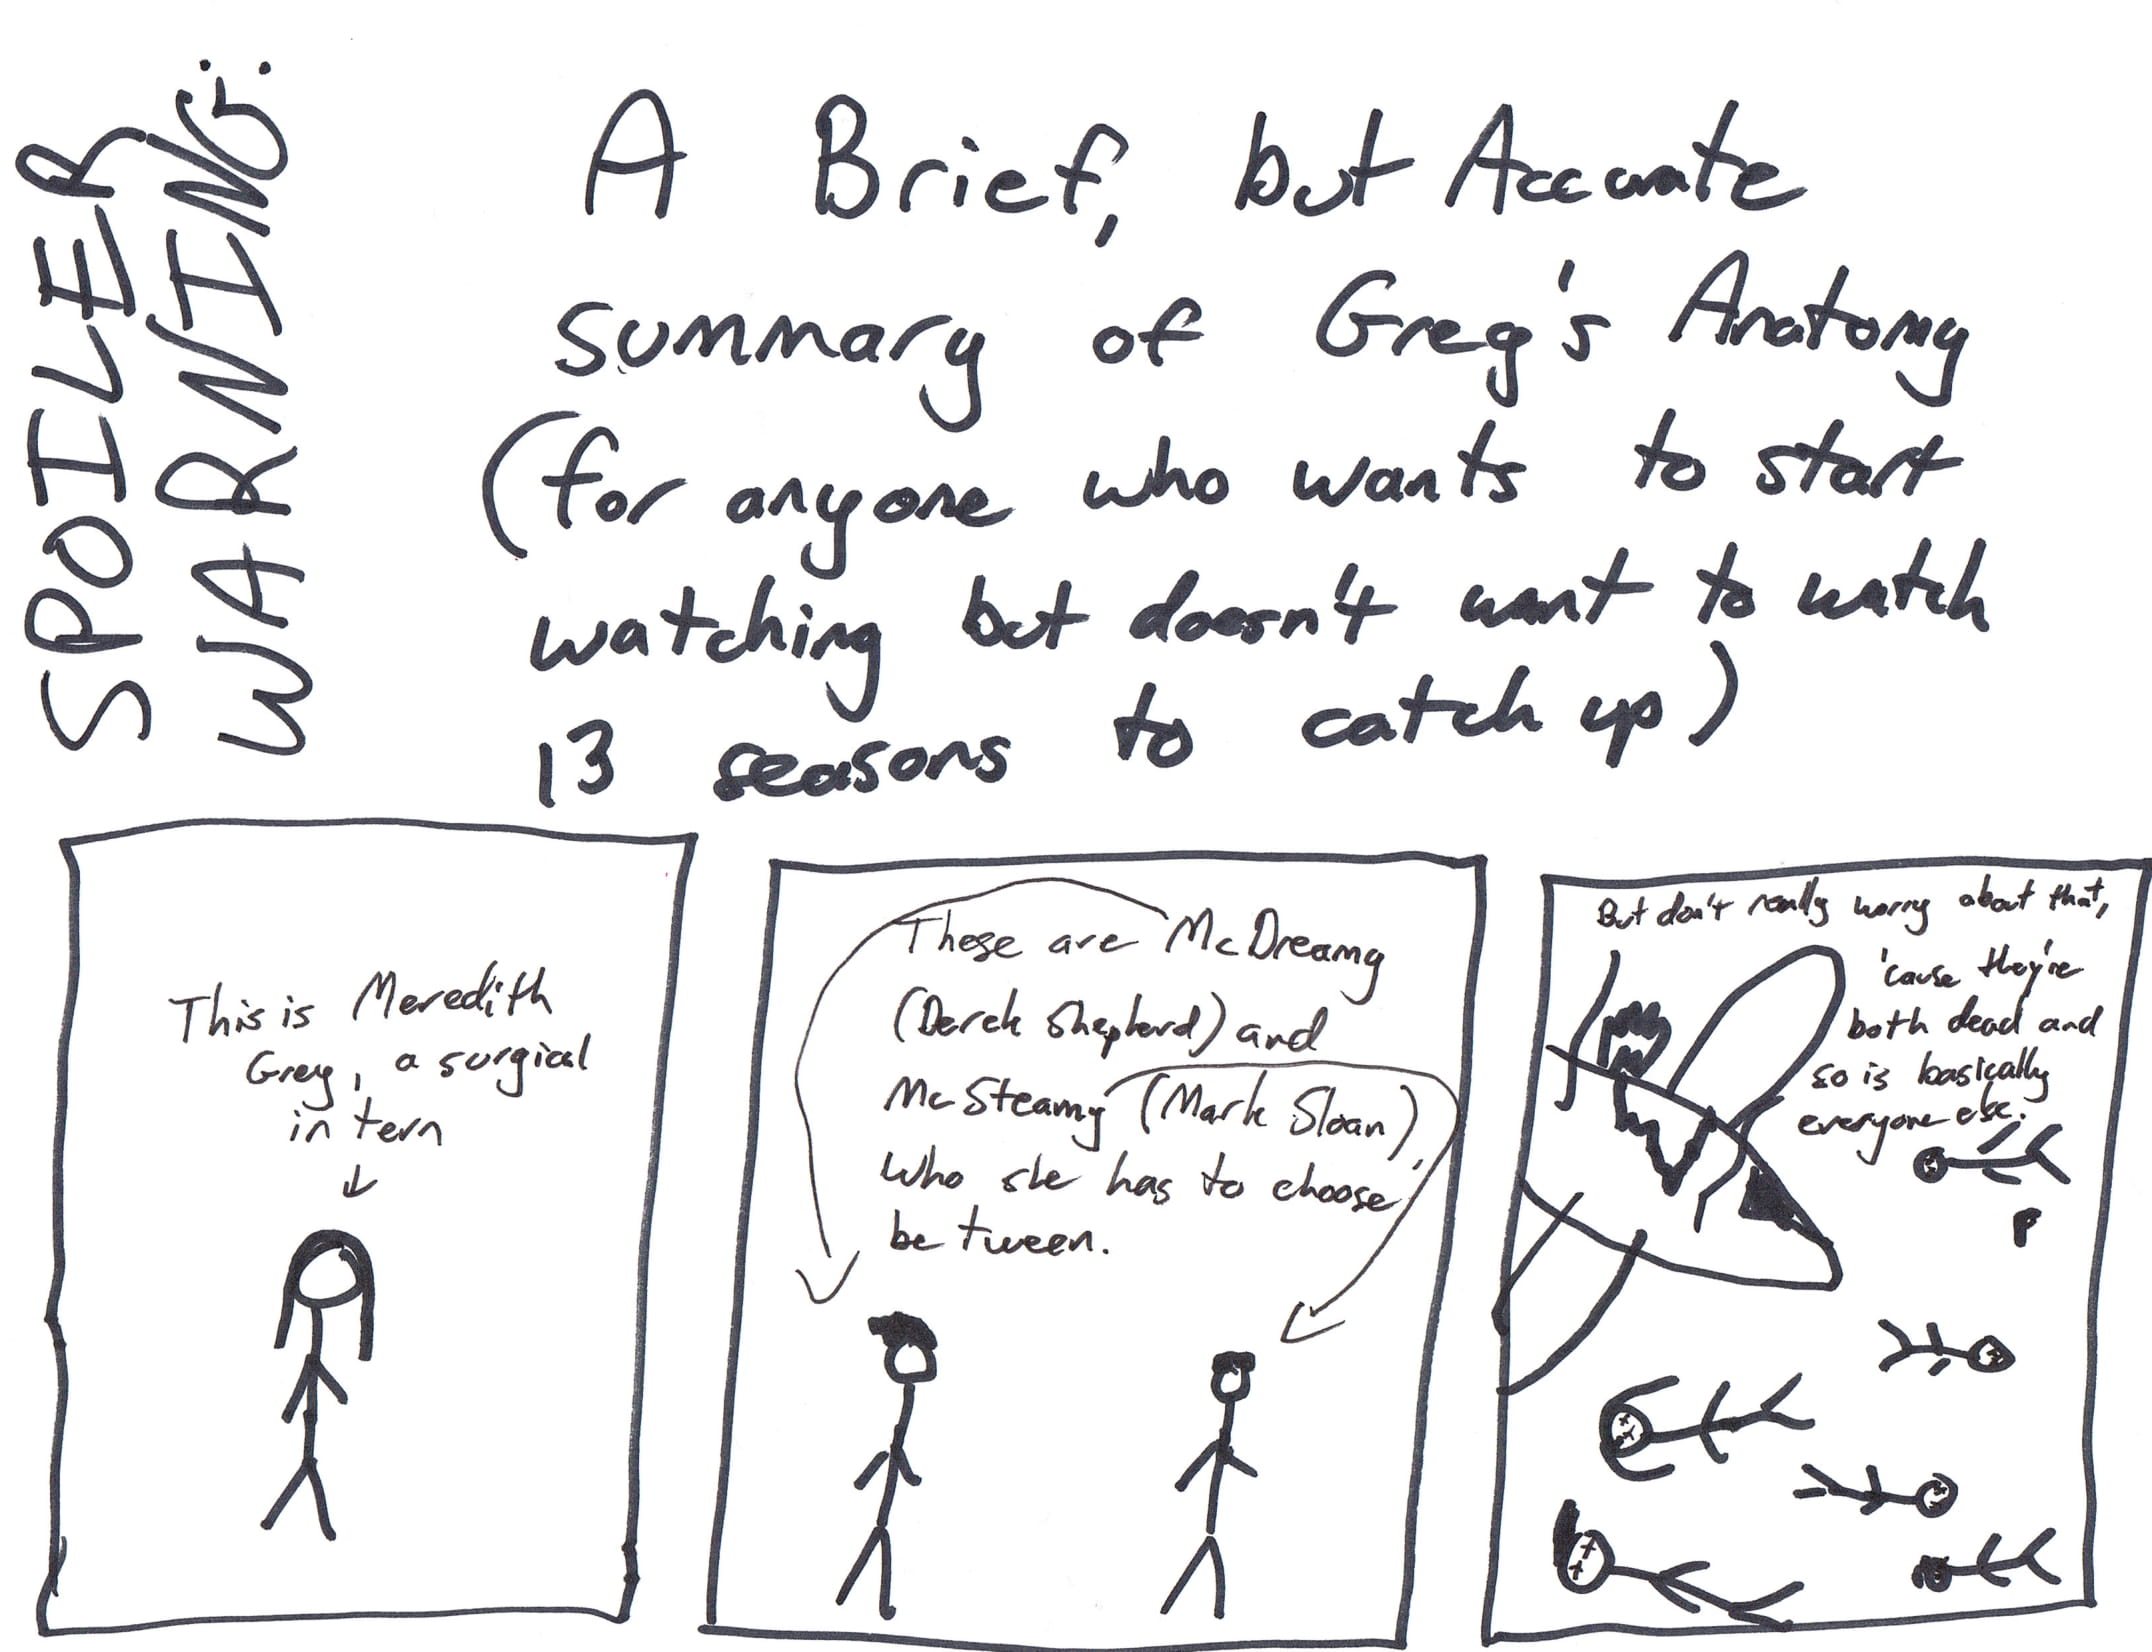 SPOILER
WARNING:
A Brief, but Accurate
summary of Greg's Anatomy
(for anyone who wants to start
watching but doesn't want to watch
13 seasons to catch up)
This is Meredith
Grey, a surgical
intern
These are McDreamy
(Derek Shepherd) and
McSteamy (Mark Sloan),
who she has to choose
between.
But don't really worry about that,
'cause they're
both dead and
so is basically
everyone else.